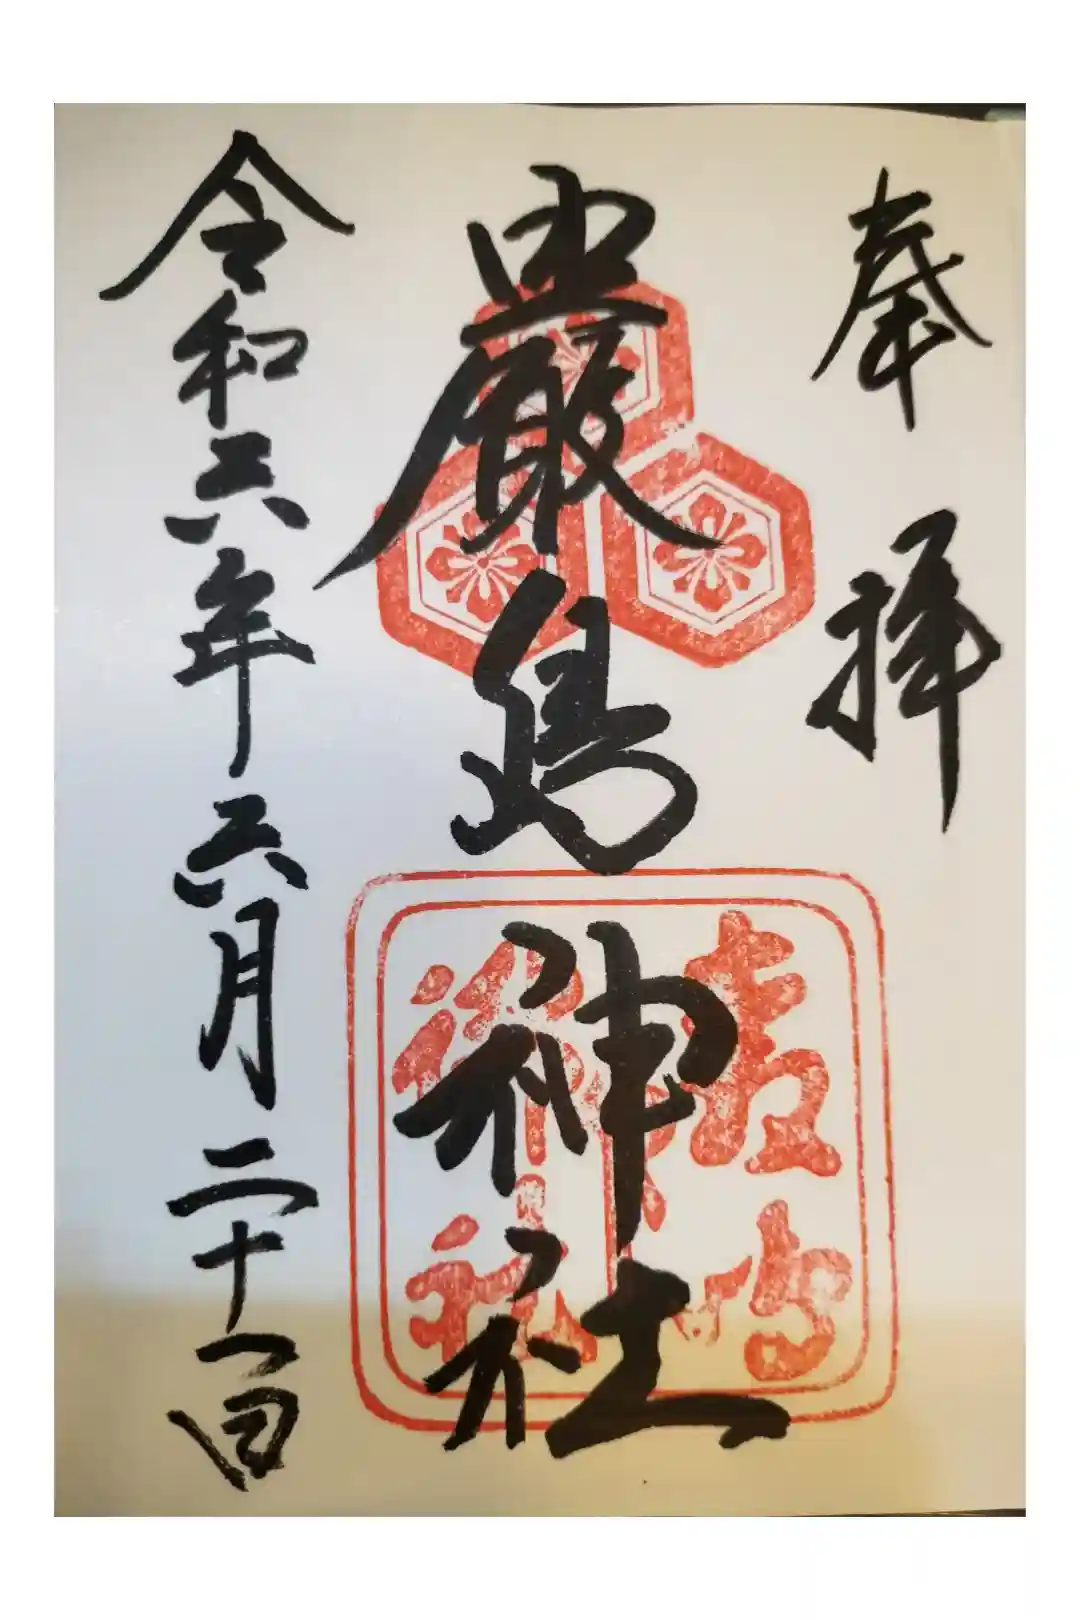 奉拝
嚴島神社
令和六年六月二十一日
嚴島神社